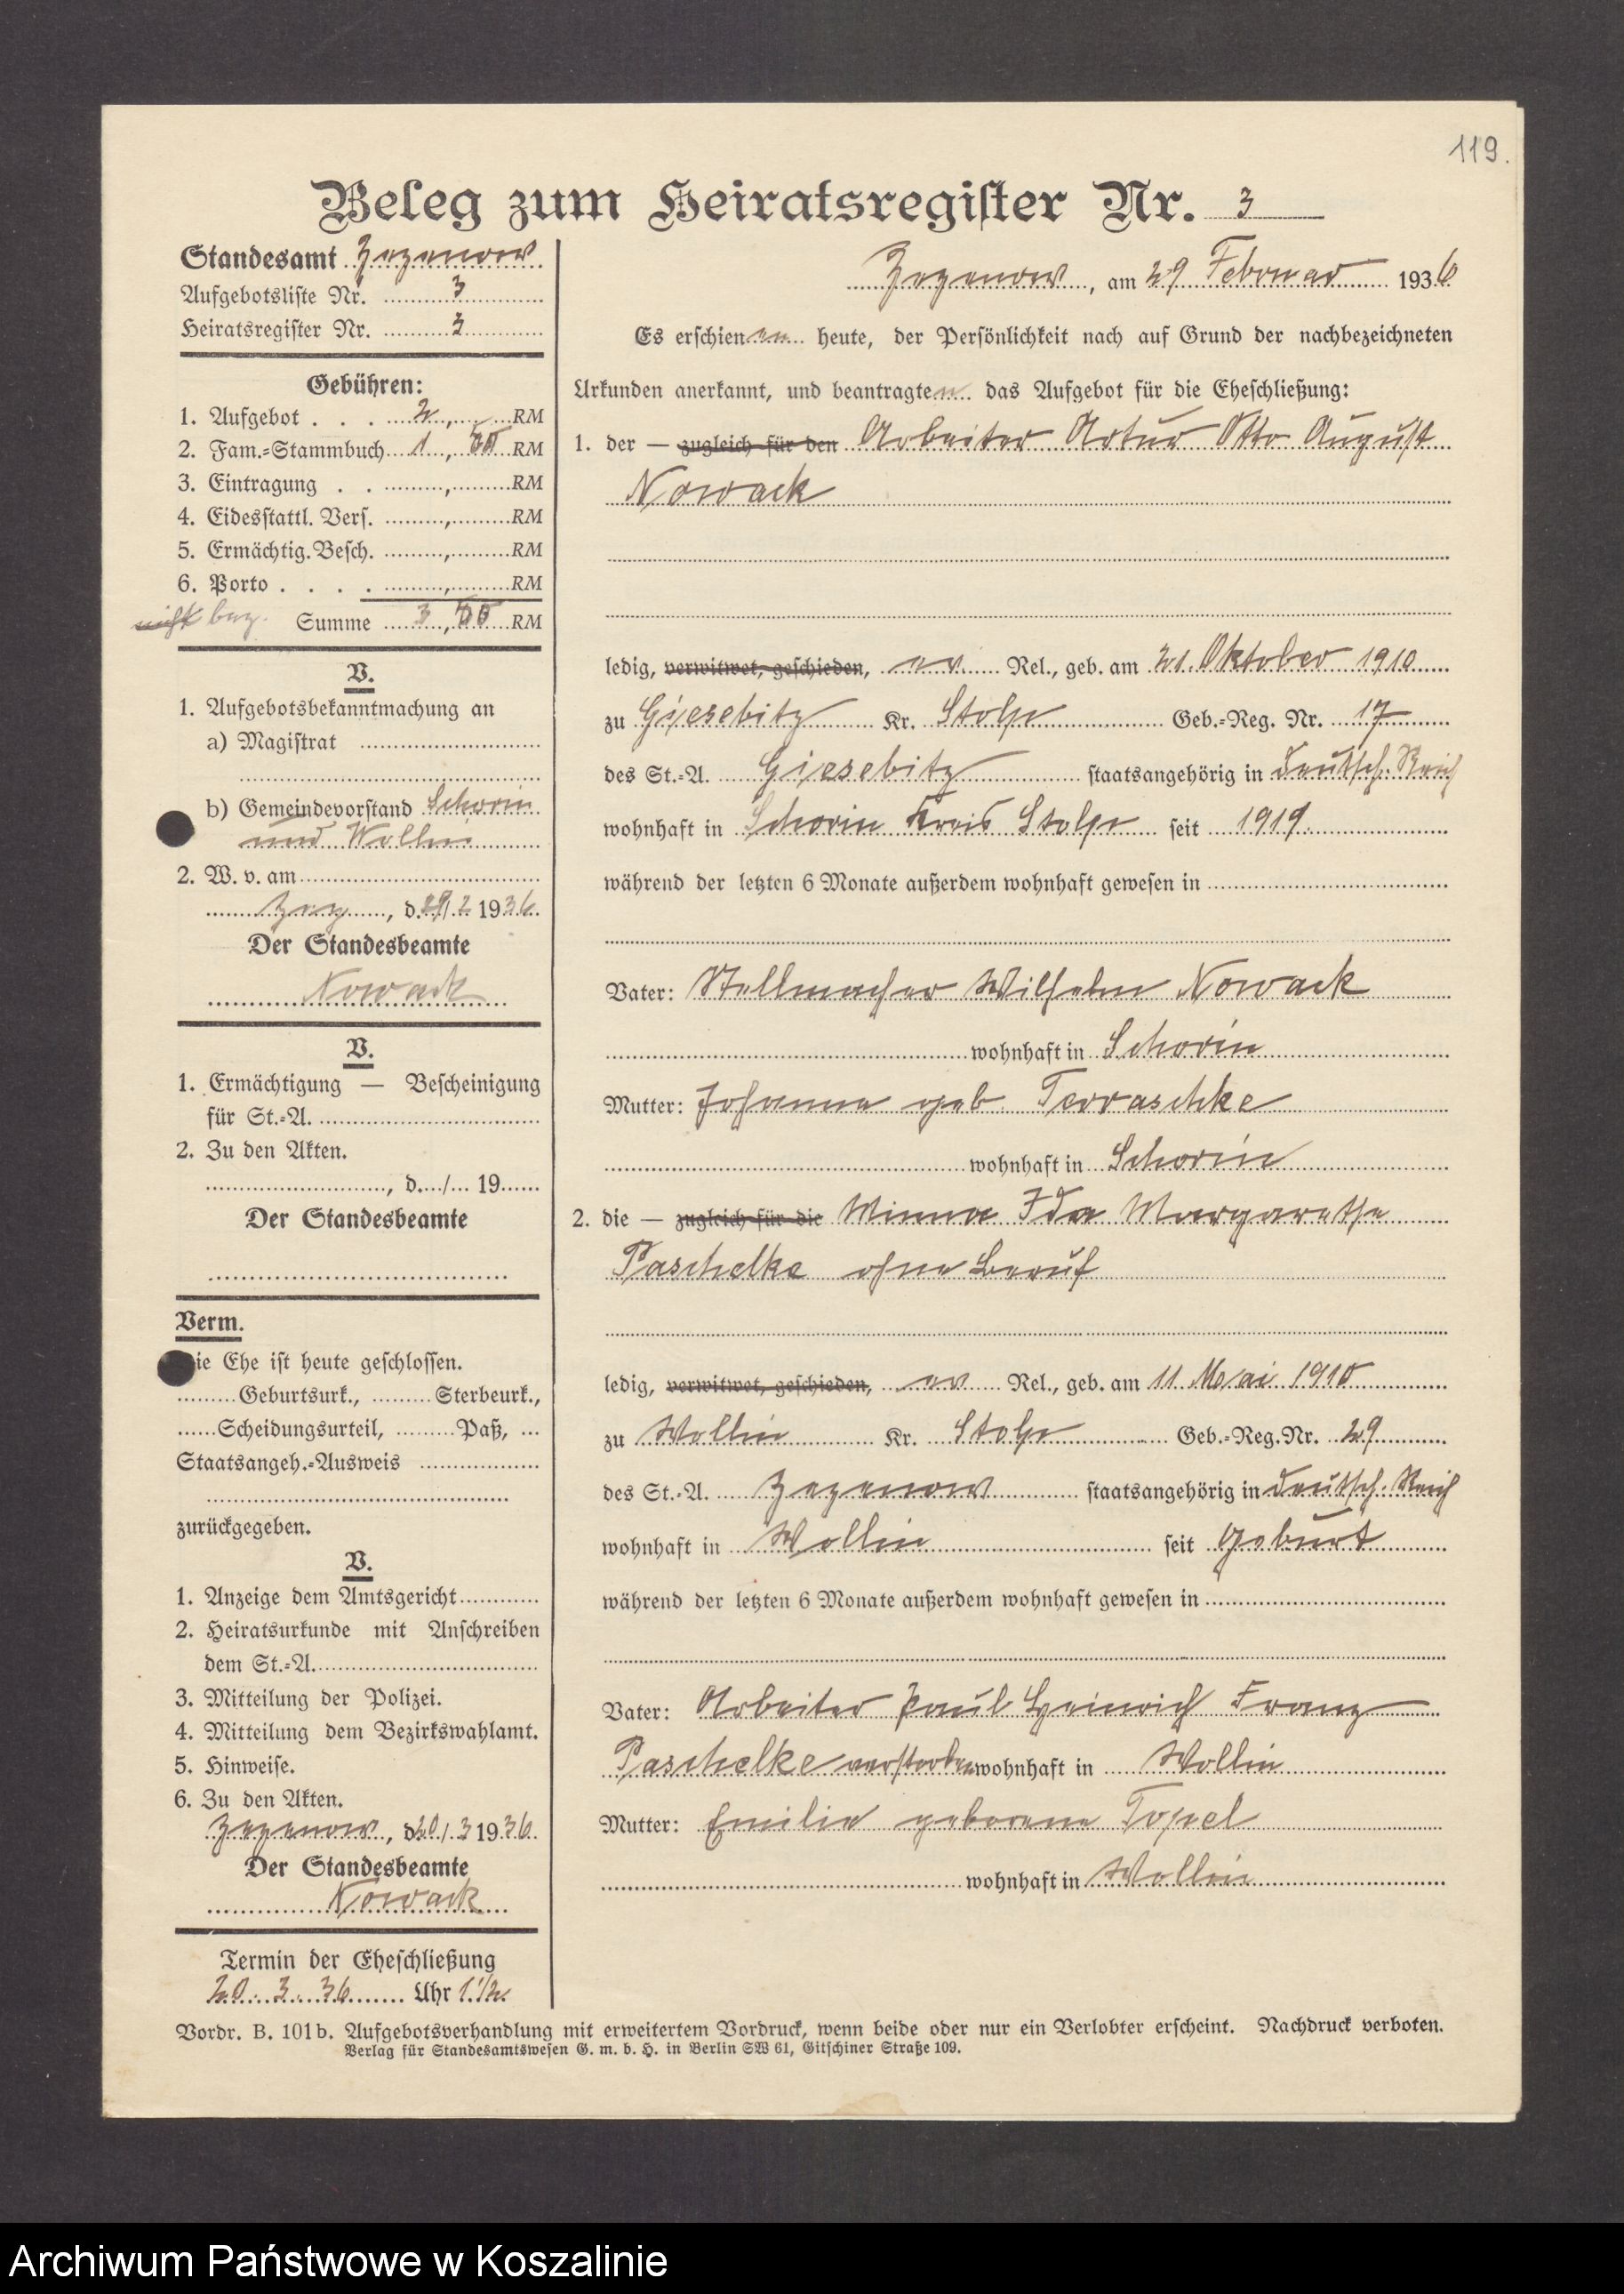 119.
Beleg zum Heiratsregister Nr. 3
Standesamt Zezenow
Aufgebotsliste Nr. 3
Heiratsregister Nr. 3
Gebühren:
1. Aufgebot . . . 2,— RM
2. Fam.=Stammbuch 1, RM
3. Eintragung . . , RM
4. Eidesstattl. Vers. , RM
5. Ermächtig. Besch. , RM
6. Porto . . . . , RM
nicht bez. Summe 3, RM
V.
1. Aufgebotsbekanntmachung an
a) Magistrat
b) Gemeindevorstand Schorin
und Wollin
2. W. v. am
Zez, d. 29/2 1936.
Der Standesbeamte
Nowack
V.
1. Ermächtigung — Bescheinigung
für St.=A.
2. Zu den Akten.
, d. / 19
Der Standesbeamte
Verm.
ie Ehe ist heute geschlossen.
Geburtsurk., Sterbeurk.,
Scheidungsurteil, Paß,
Staatsangeh.=Ausweis
zurückgegeben.
V.
1. Anzeige dem Amtsgericht
2. Heiratsurkunde mit Anschreiben
dem St.=A.
3. Mitteilung der Polizei.
4. Mitteilung dem Bezirkswahlamt.
5. Hinweise.
6. Zu den Akten.
Zezenow, d. 20/3 1936.
Der Standesbeamte
Nowack
Termin der Eheschließung
20. 3. 36 Uhr 1 1/2
Zezenow, am 29 Februar 1936
Es erschienen heute, der Persönlichkeit nach auf Grund der nachbezeichneten
Urkunden anerkannt, und beantragten das Aufgebot für die Eheschließung:
1. der — zugleich für den Arbeiter Artur Otto August
Nowack
ledig, verwitwet, geschieden, ev. Rel., geb. am 21. Oktober 1910
zu Giesebitz Kr. Stolp Geb.=Reg. Nr. 17
des St.=A. Giesebitz staatsangehörig in Deutsch. Reich
wohnhaft in Schorin Kreis Stolp seit 1919.
während der letzten 6 Monate außerdem wohnhaft gewesen in
Vater: Stellmacher Wilhelm Nowack
wohnhaft in Schorin
Mutter: Johanna geb. Terraschke
wohnhaft in Schorin
2. die — zugleich für die Minna Ida Margarethe
Paschelke ohne Beruf
ledig, verwitwet, geschieden, ev. Rel., geb. am 11 Mai 1910
zu Wollin Kr. Stolp Geb.=Reg. Nr. 29
des St.=A. Zezenow staatsangehörig in Deutsch. Reich
wohnhaft in Wollin seit Geburt
während der letzten 6 Monate außerdem wohnhaft gewesen in
Vater: Arbeiter Paul Heinrich Franz
Paschelke verstorben wohnhaft in Wollin
Mutter: Emilie geborene Topel
wohnhaft in Wollin
Vordr. B. 101b. Aufgebotsverhandlung mit erweitertem Vordruck, wenn beide oder nur ein Verlobter erscheint. Nachdruck verboten.
Verlag für Standesamtswesen G. m. b. H. in Berlin SW 61, Gitschiner Straße 109.
Archiwum Państwowe w Koszalinie